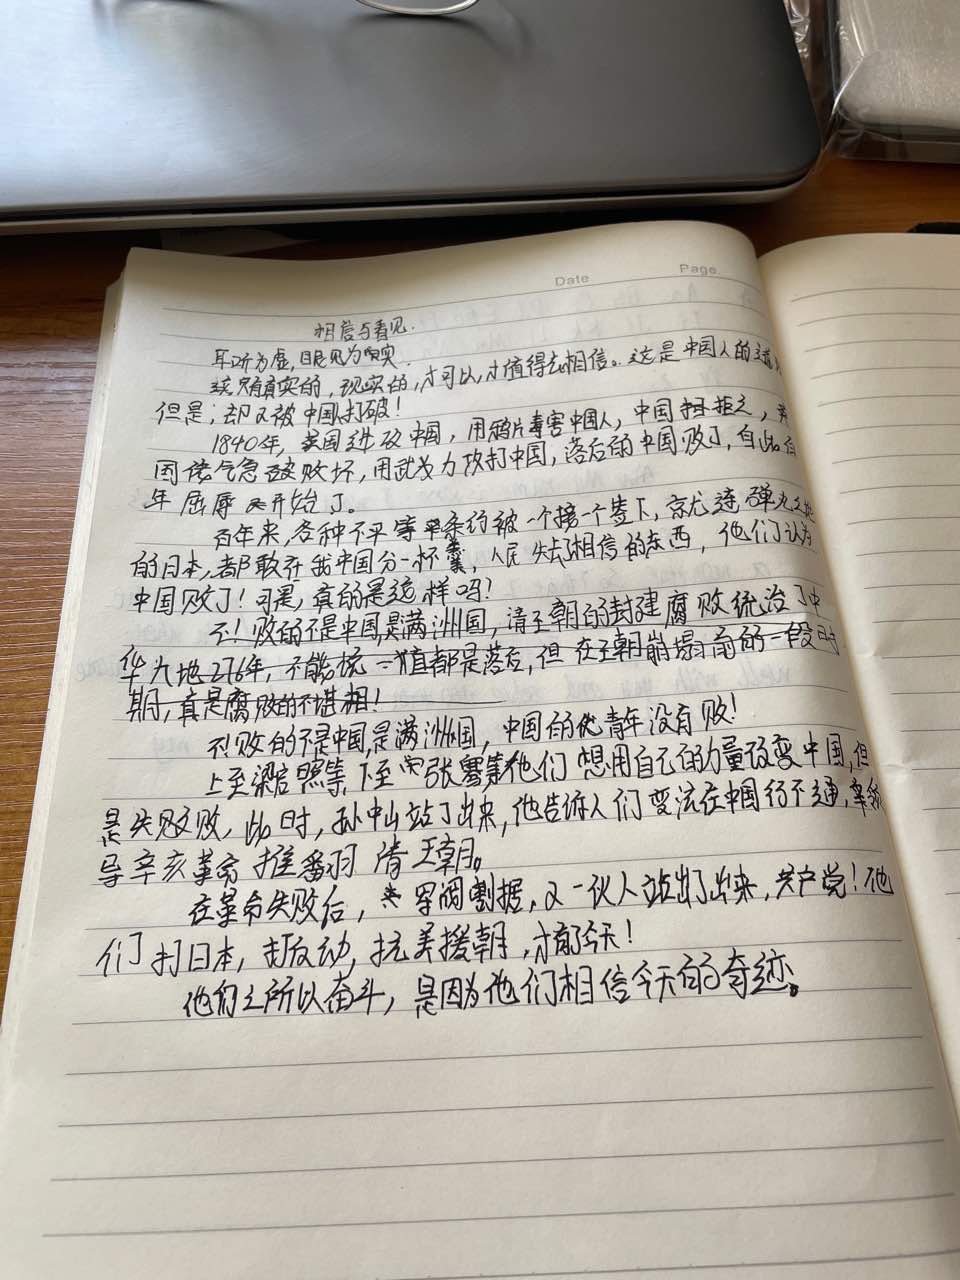 Date Page.
相信与看见.
耳听为虚,眼见为实.
只有真实的,现实的,才可以,才值得去相信。这是中国人的
但是;却又被中国人打破!
1840年,英国进攻中国,用鸦片毒害中国人,中国拒之,
因气急败坏,用武力攻打中国,落后的中国败了,自此百
年屈辱开始了。
百年来,各种不平等条约被一个接一个签下,竟尤连弹丸之地
的日本,都敢在我中国分一杯羹,人民失去相信的东西,他们认为
中国败了!可是,真的是这样吗?
不!败的不是中国,是满洲国,清王朝的封建腐败统治了中
华大地276年,不能说一直都是落后,但在王朝崩塌前的一段时
期,真是腐败的不堪相!
不!败的不是中国,是满洲国,中国的青年没有败!
上至梁启照等,下至张謇等他们想用自己的力量改变中国,但
是失败,此时,孙中山站了出来,他告诉人们变法在中国行不通,率领
导辛亥革命推翻清王朝。
在革命失败后,军阀割据,又一伙人站出了出来,共产党!他
们打日本,打反动,抗美援朝,才有了今天!
他们之所以奋斗,是因为他们相信今天的奇迹。